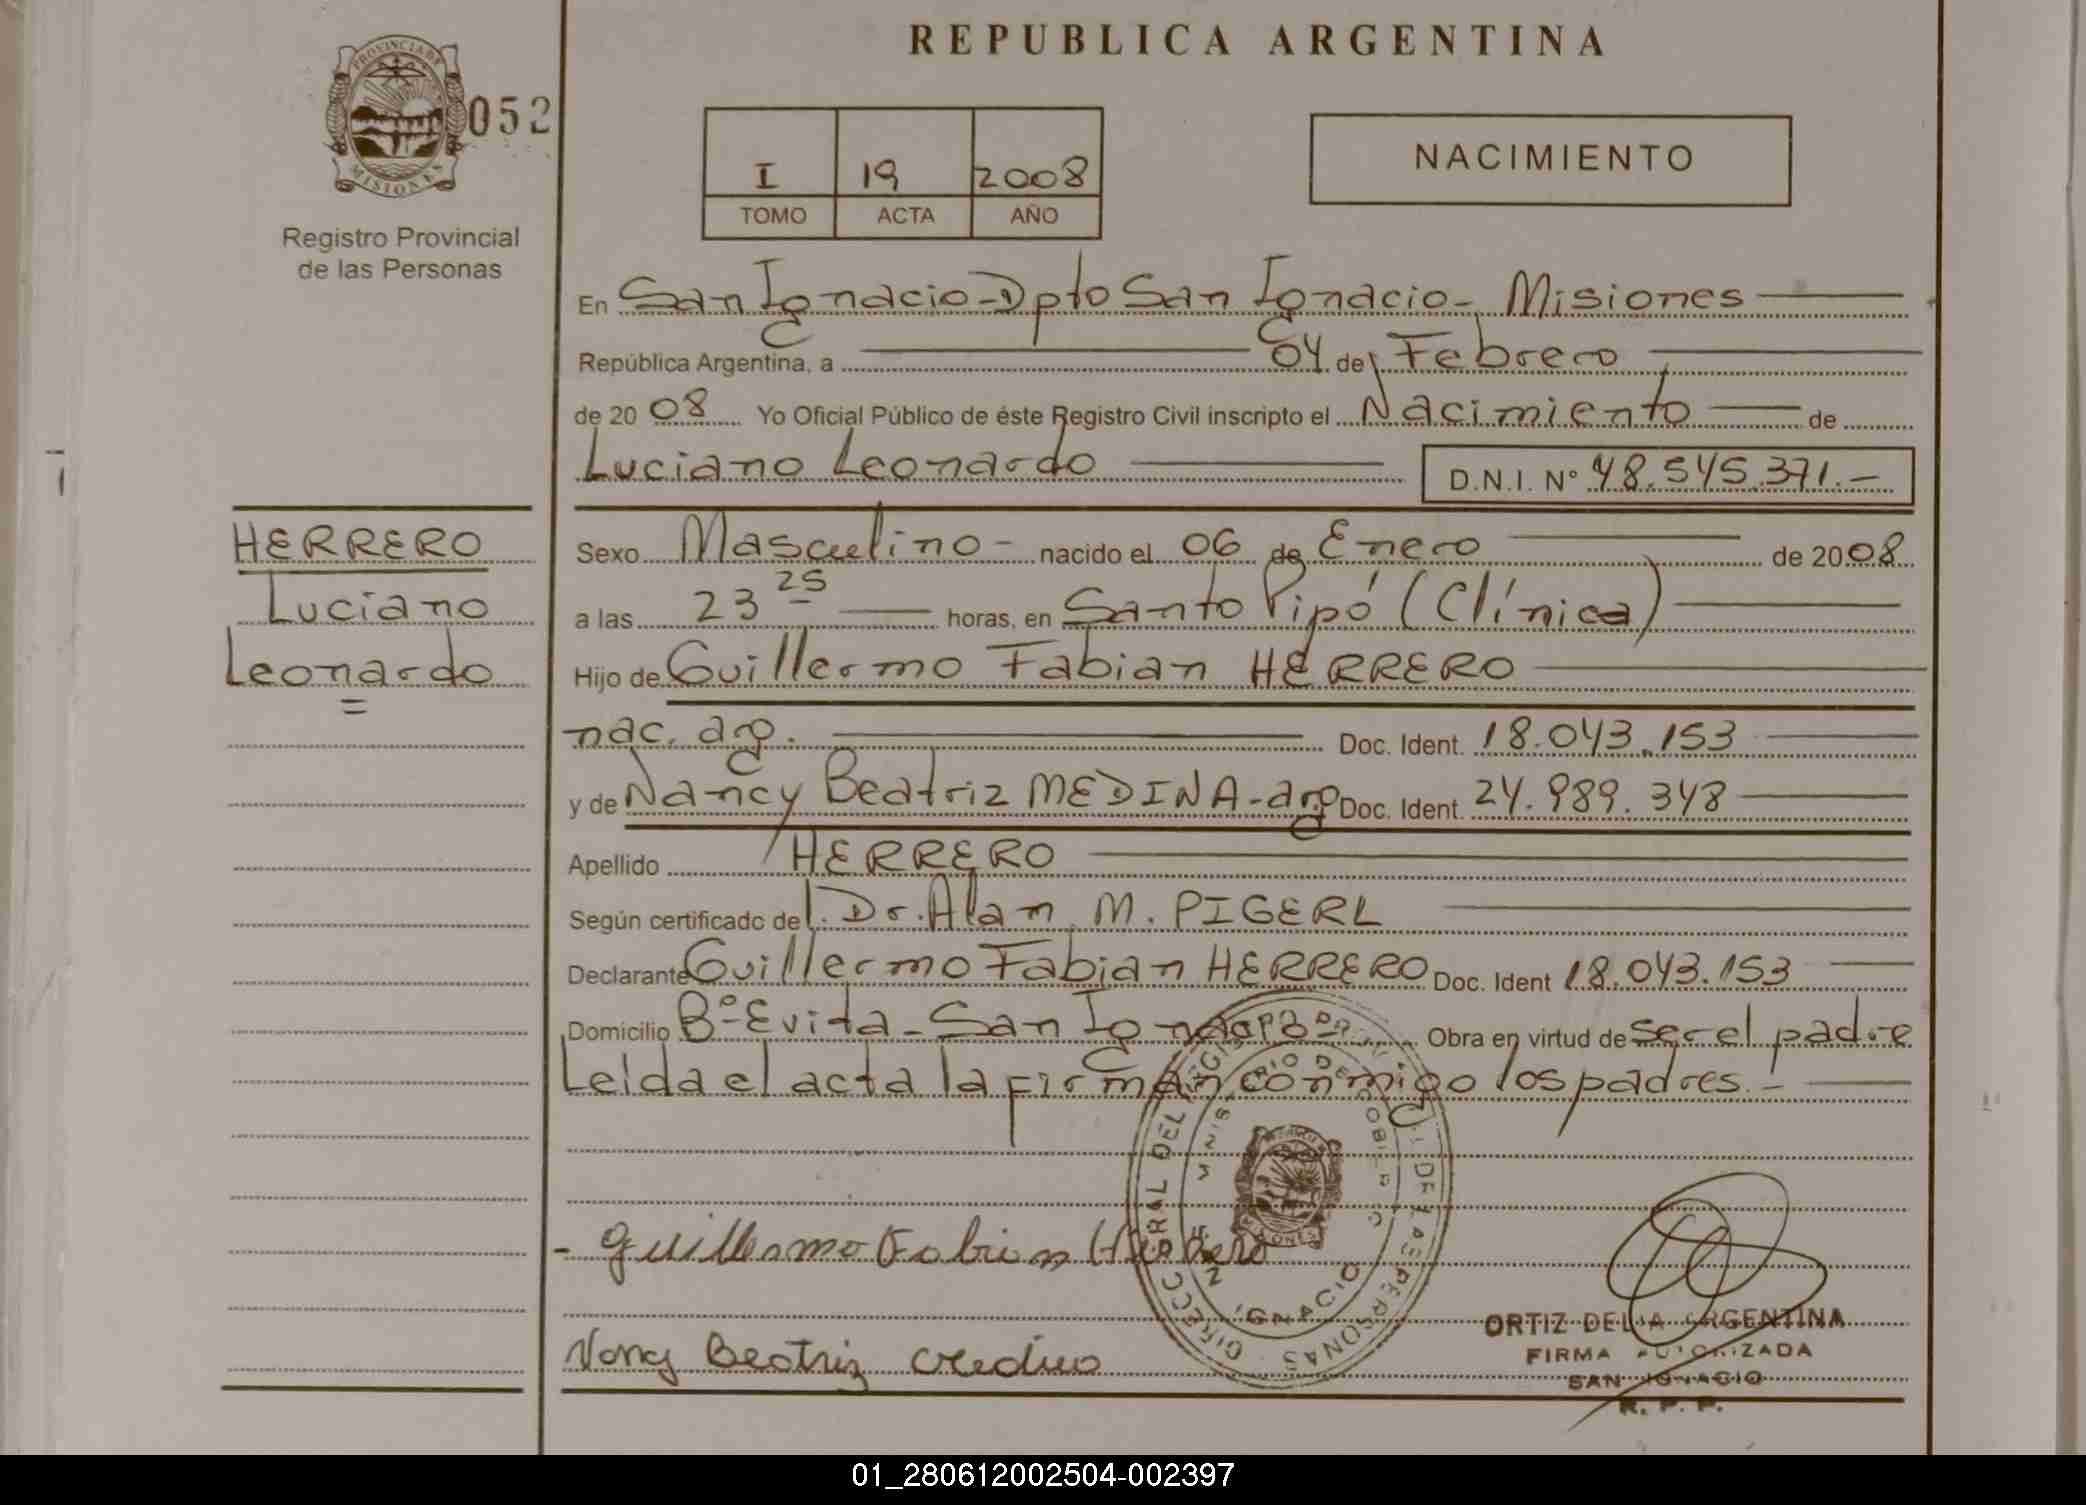 REPUBLICA ARGENTINA
PROVINCIA DE
MISIONES
052
Registro Provincial
de las Personas
I 19 2008
TOMO ACTA AÑO
NACIMIENTO
En San Ignacio - Dpto San Ignacio - Misiones
República Argentina, a 04 de Febrero
de 20 08 Yo Oficial Público de éste Registro Civil inscripto el Nacimiento de
Luciano Leonardo D.N.I. N° 48.545.371.-
HERRERO
Luciano
Leonardo
Sexo Masculino - nacido el 06 de Enero de 2008
a las 23 25 horas, en Santo Pipó (Clínica)
Hijo de Guillermo Fabian HERRERO
nac. arg. Doc. Ident. 18.043.153
y de Nancy Beatriz MEDINA - arg Doc. Ident. 24.989.348
Apellido HERRERO
Según certificado del. Dr. Alan M. PIGERL
Declarante Guillermo Fabian HERRERO Doc. Ident 18.043.153
Domicilio B° Evita - San Ignacio Obra en virtud de ser el padre
Leida el acta la firman conmigo los padres.-
- Guillermo Fabian Herrero
Nancy Beatriz
IGNACIO
ORTIZ DELIA ARGENTINA
FIRMA AUTORIZADA
SAN IGNACIO
R. P. P.
01_280612002504-002397